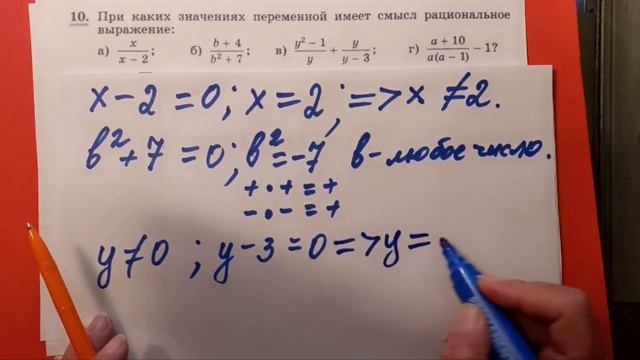 10. При каких значениях переменной имеет смысл рациональное
выражение:
а) x/(x − 2); б) (b + 4)/(b² + 7); в) (y² − 1)/y + y/(y − 3); г) (a + 10)/(a(a − 1)) − 1?
x − 2 = 0; x = 2; => x ≠ 2.
b² + 7 = 0; b² = −7 b - любое число.
+ · + = +
− · − = +
y ≠ 0 ; y − 3 = 0 => y =